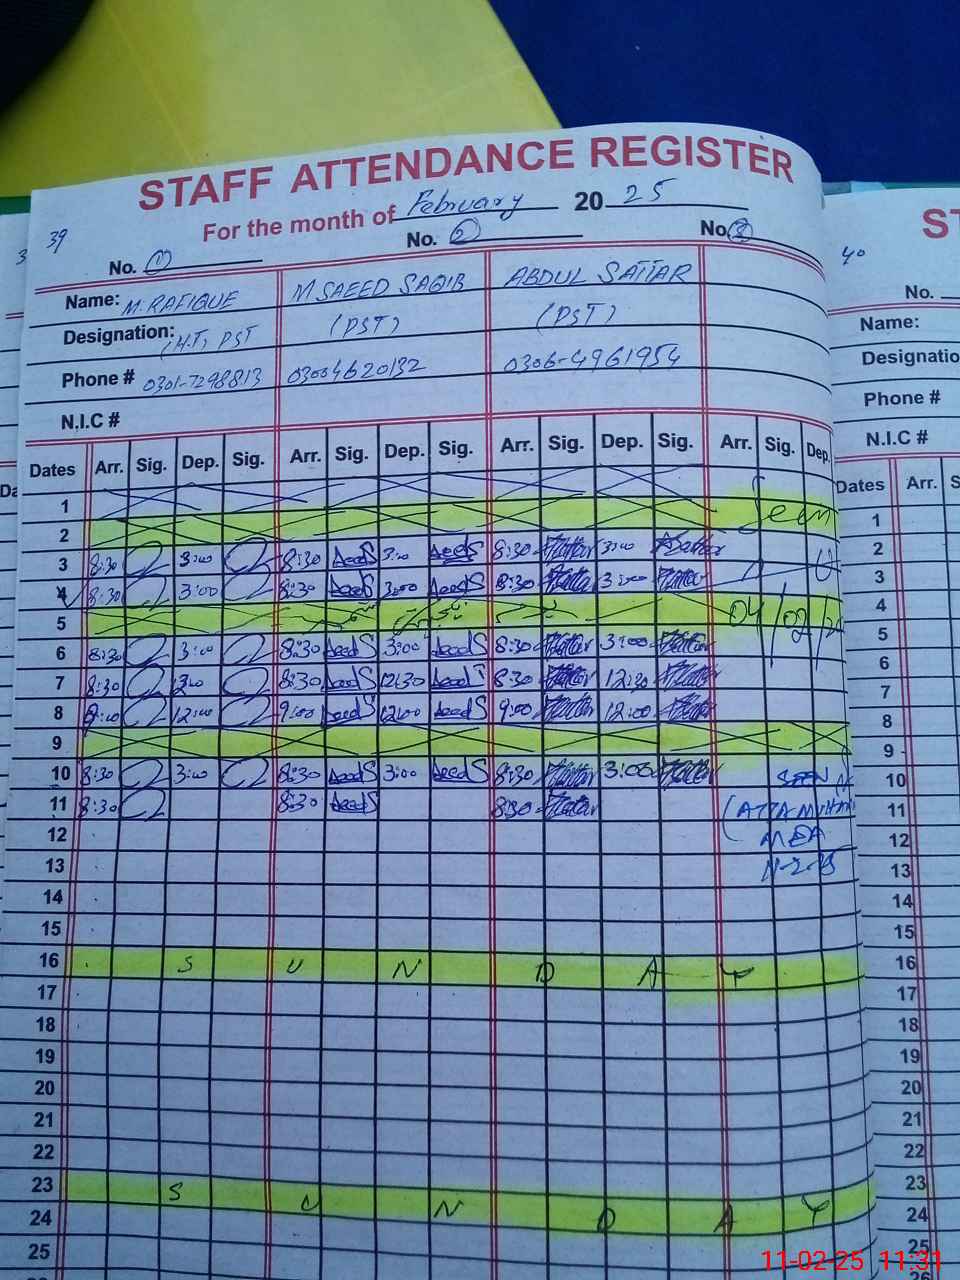 STAFF ATTENDANCE REGISTER
For the month of February 20 25
39
No. 1 No. 2 No. 3
Name: M. RAFIQUE M SAEED SAQIB ABDUL SATTAR
Designation: (H.T) PST (PST) (PST)
Phone # 0301-7298813 03004620132 0306-4961954
N.I.C #
Dates Arr. Sig. Dep. Sig. Arr. Sig. Dep. Sig. Arr. Sig. Dep. Sig. Arr. Sig. Dep.
1
2 Seen
3 8:30 3:00 8:30 3:00 8:30 3:00
4 8:30 3:00 8:30 3:00 8:30 3:00
5 04/02/
6 8:30 3:00 8:30 3:00 8:30 3:00
7 8:30 8:30 12:30 8:30 12:30
8 9:00 12:00 9:00 12:00 9:00 12:00
9
10 8:30 3:00 8:30 3:00 8:30 3:00 SEEN
11 8:30 8:30 8:30 (ATTA
12 MEA
13
14
15
16 S U N D A Y
17
18
19
20
21
22
23 S U N D A Y
24
25
40
ST
No.
Name:
Designatio
Phone #
N.I.C #
Dates Arr. S
1
2
3
4
5
6
7
8
9
10
11
12
13
14
15
16
17
18
19
20
21
22
23
24
25
26
11-02-25 11:31